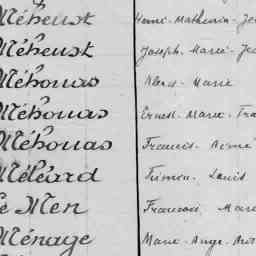 Méheust Henri - Mathurin - Je
Méheust Joseph - Marie - Je
Méhouas Alexis - Marie
Méhouas Ernest - Marie - Fra
Méhouas Francis - Aimé
Méléard Simon - Louis
Le Men François Mar
Ménage Marie - Ange -